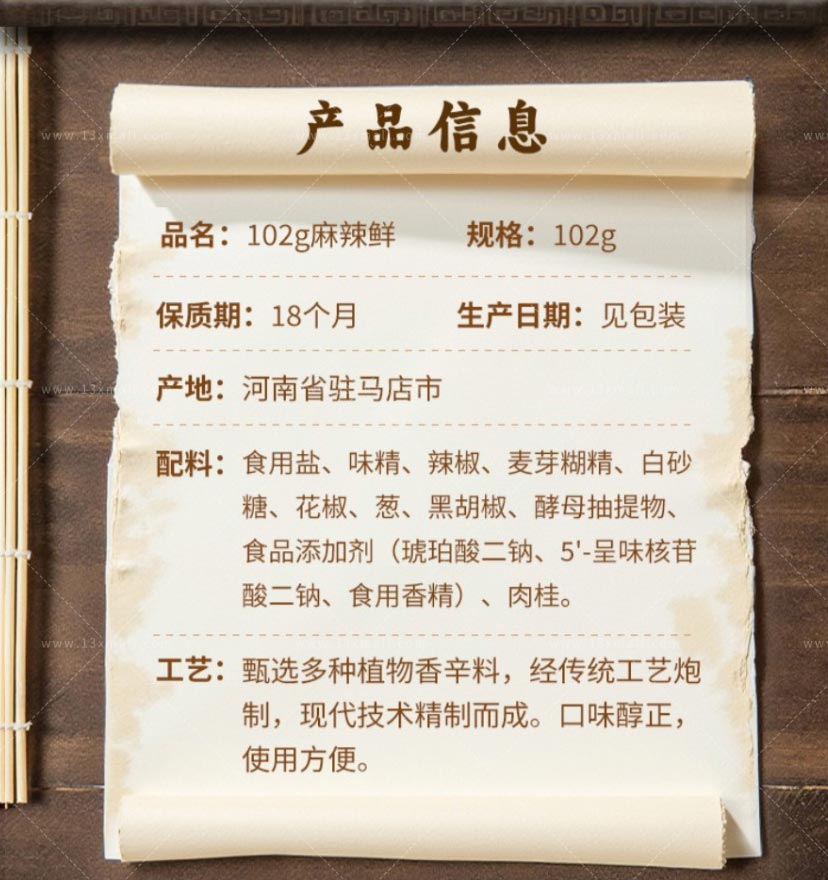 产品信息
品名：102g麻辣鲜 规格：102g
保质期：18个月 生产日期：见包装
产地：河南省驻马店市
配料：食用盐、味精、辣椒、麦芽糊精、白砂
糖、花椒、葱、黑胡椒、酵母抽提物、
食品添加剂（琥珀酸二钠、5'-呈味核苷
酸二钠、食用香精）、肉桂。
工艺：甄选多种植物香辛料，经传统工艺炮
制，现代技术精制而成。口味醇正，
使用方便。